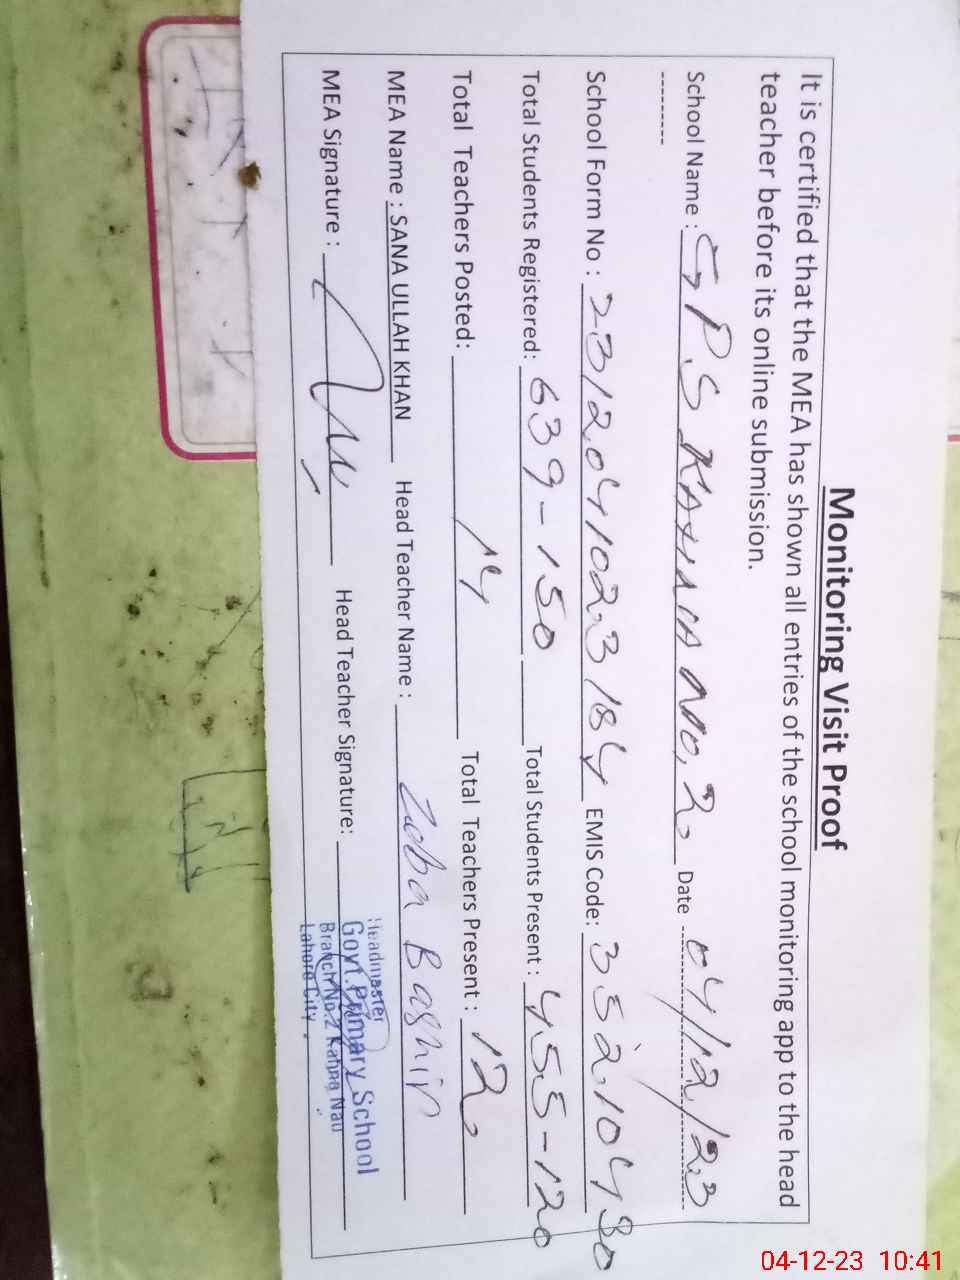 Monitoring Visit Proof
It is certified that the MEA has shown all entries of the school monitoring app to the head
teacher before its online submission.
School Name : G P S KAHNA NO, 2 Date 04/12/23
School Form No : 2312041023184 EMIS Code: 35210430
Total Students Registered: 639-150 Total Students Present : 455-120
Total Teachers Posted: 14 Total Teachers Present : 12
MEA Name : SANA ULLAH KHAN Head Teacher Name : Zoba Bashir
MEA Signature : Head Teacher Signature:
Headmaster
Govt. Primary School
Branch No.2 Kahna Nau
Lahore City.
04-12-23 10:41